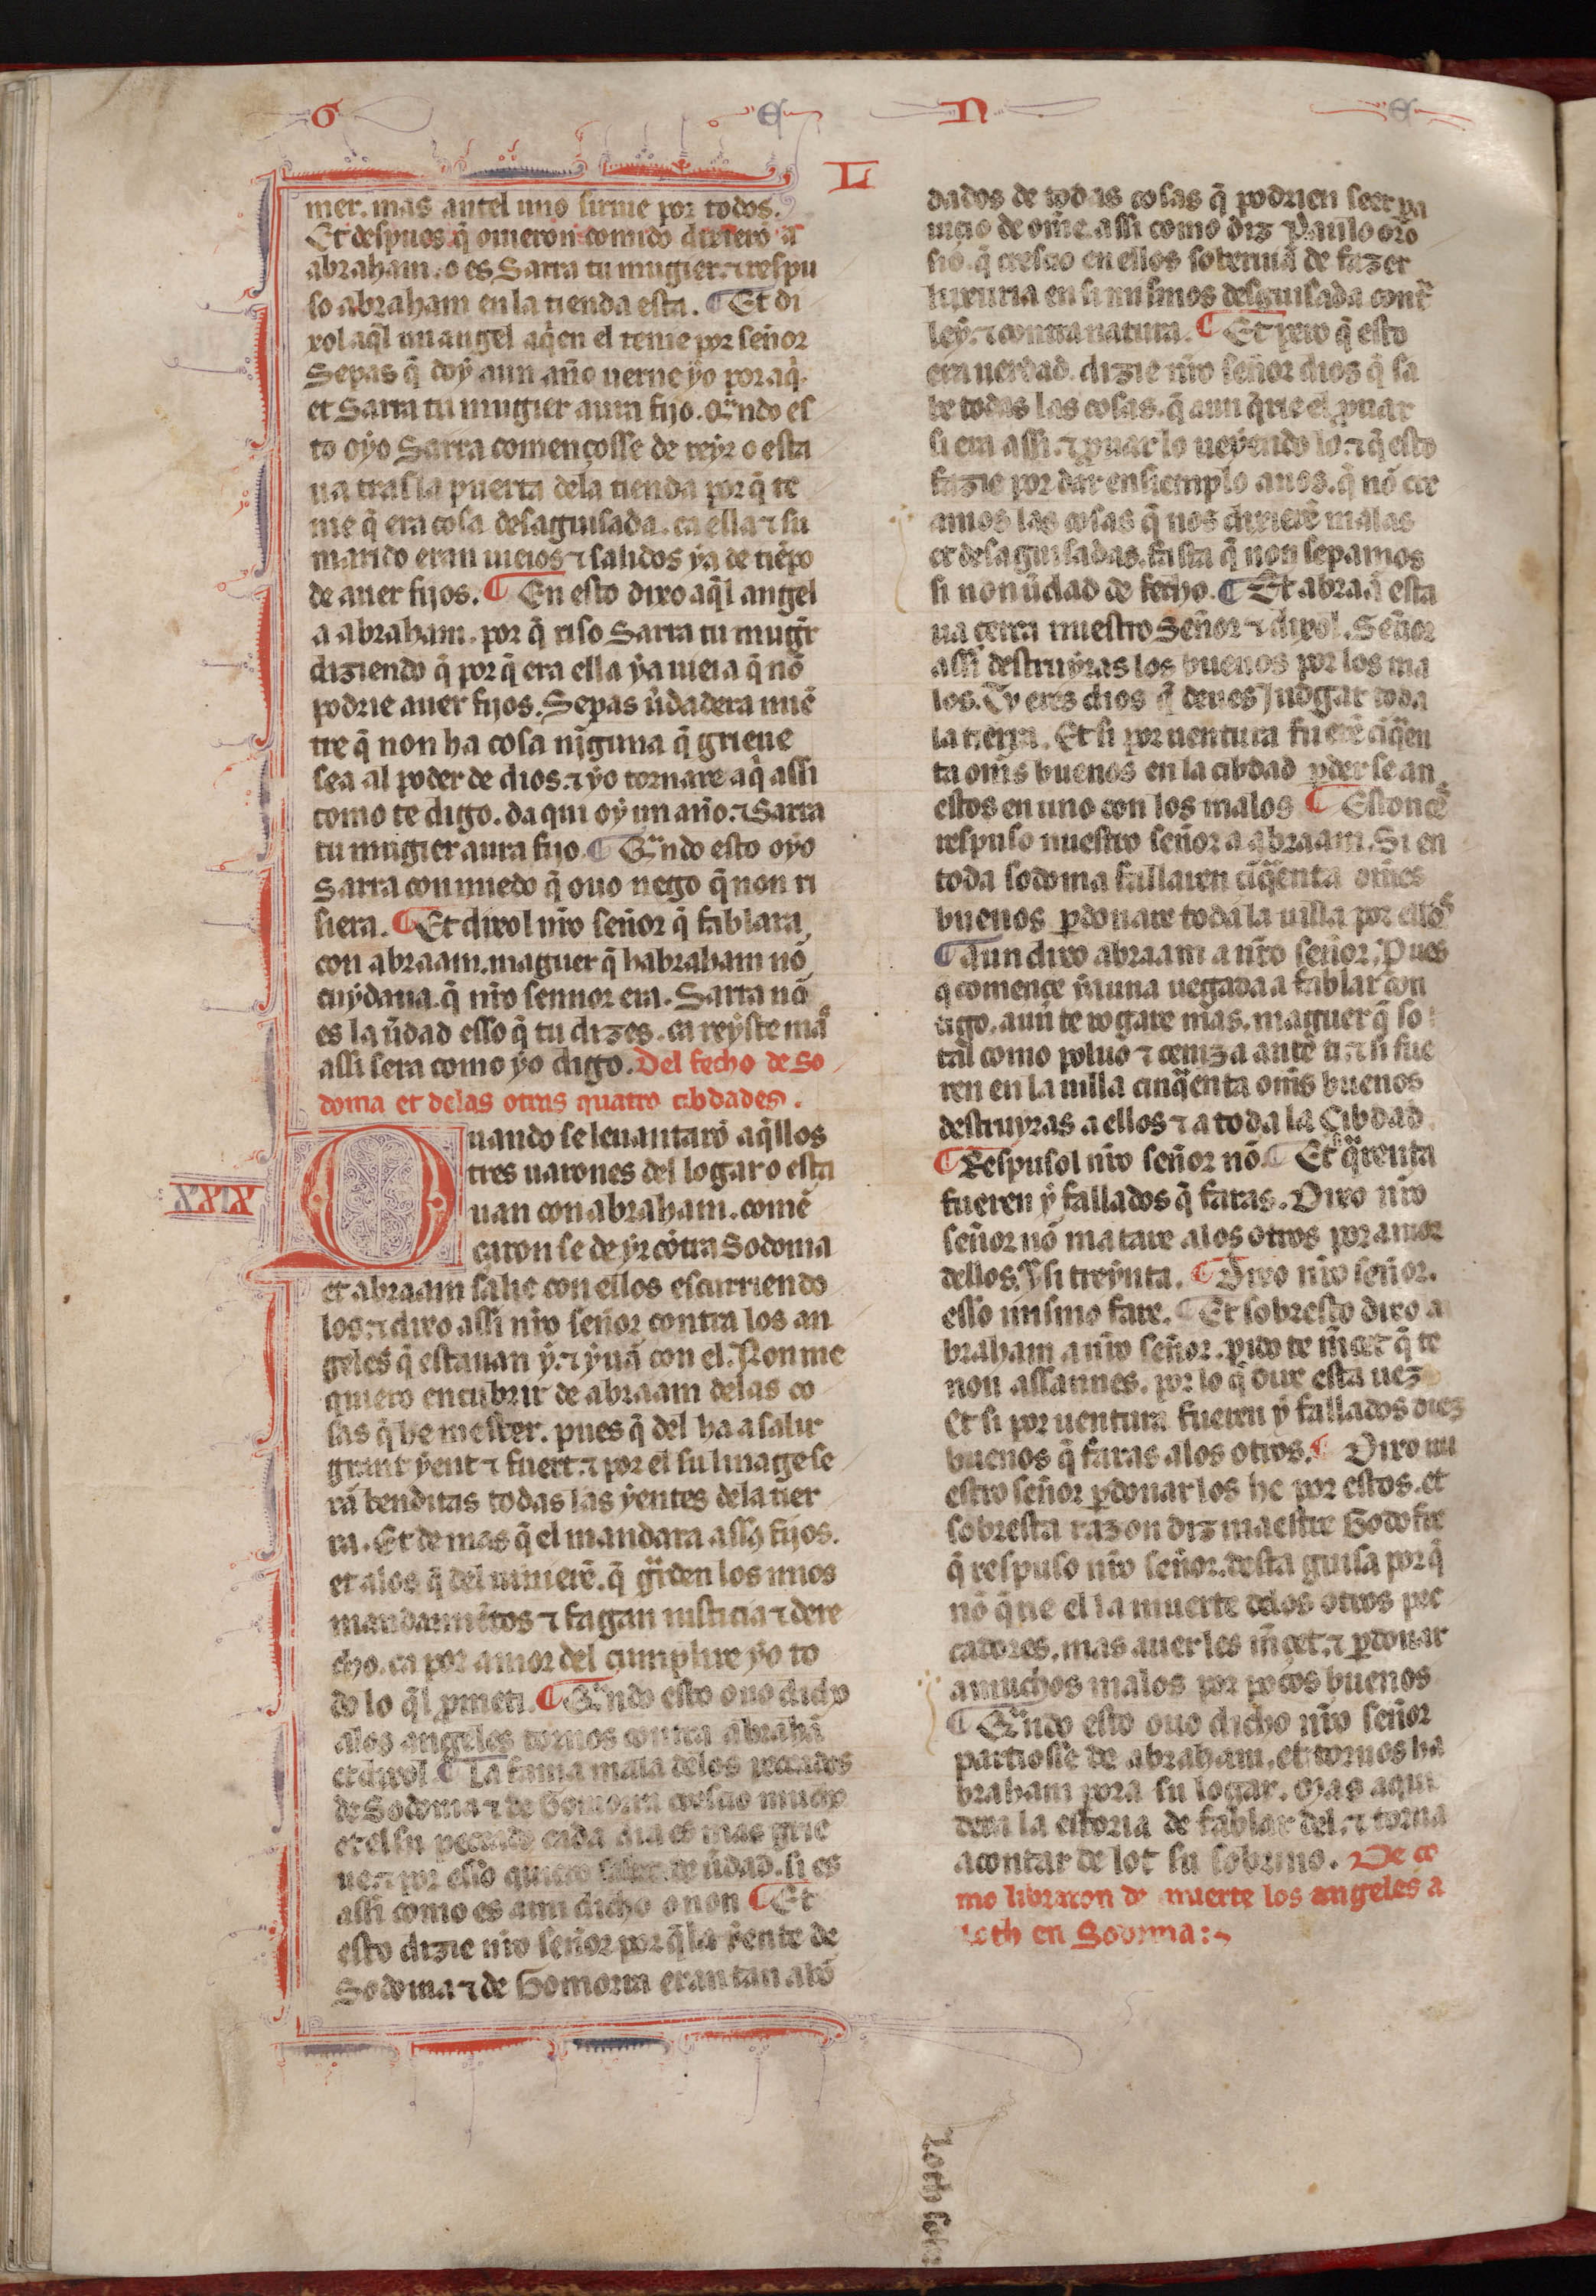 G E N E
L
mer. mas antel uno sirme por todos.
Et despues q̃ ouieron comido dixierõ a
abraham. o es Sarra tu mugier. ⁊ respu
so abraham en la tienda esta. ¶ Et di
xol aq̃l un angel aq̃en el tenie por señor
Sepas q̃ doy aun año uerne yo por aq̃.
et Sarra tu mugier aura fijo. Qⁿndo es
to oyo Sarra començosse de reyr o esta
ua tras la puerta dela tienda por q̃ te
nie q̃ era cosa desaguisada. ca ella ⁊ su
marido eran uieios ⁊ salidos ya de tiẽpo
de auer fijos. ¶ En esto dixo aq̃l angel
a abraham. por q̃ riso Sarra tu mugr̃
diziendo q̃ por q̃ era ella ya uieia q̃ nõ
podrie auer fijos. Sepas ũdadera miẽ
tre q̃ non ha cosa nĩguna q̃ grieue
sea al poder de dios. ⁊ yo tornare aq̃ assi
como te digo. da qui oy un año. ⁊ Sarra
tu mugier aura fijo ¶ Qⁿndo esto oyo
Sarra con miedo q̃ ouo nego q̃ non ri
siera. ¶ Et dixol nr̃o señor q̃ fablara
con abraam. maguer q̃ habraham nõ
cuydaua. q̃ nr̃o sennor era. Sarra nõ
es la ũdad esso q̃ tu dizes. ca reyste mas
assi sera como yo digo. Del fecho de So
doma et delas otras quatro cibdades.
XXIX
Quando se leuantarõ aq̃llos
tres uarones del logar o esta
uan con abraham. comẽ
çaron se de yr cõtra Sodoma
et abraam salie con ellos escurriendo
los. ⁊ dixo assi nr̃o señor contra los an
geles q̃ estauan y. ⁊ yuã con el. Non me
quiero encubrir de abraam delas co
sas q̃ he mester. pues q̃ del ha a salir
grant yent ⁊ fuert. ⁊ por el su linage se
rã benditas todas las yentes dela tier
ra. Et de mas q̃ el mandara assy fijos.
et alos q̃ del uinierẽ. q̃ gⁱden los mios
mandamiẽtos ⁊ fagan iusticia ⁊ dere
cho. ca por amor del cumplire yo to
do lo q̃l ꝓmeti. ¶ Qⁿndo esto ouo dicho
alos angeles tornos contra abrahã
et dixol ¶ La fama mala delos peccados
de Sodoma ⁊ de Gomorra crescio mucho
et el su peccado cada dia es mas grie
ue. ⁊ por esso quiero saber de ũdad. si es
assi como es ami dicho o non ¶ Et
esto dizie nr̃o señor por q̃ la yente de
Sodoma ⁊ de Gomorra eran tan abõ
dados de todas cosas q̃ podrien seer pa
uicio de om̃e. assi como diz Paulo oro
sio. q̃ crescio en ellos soberuia de fazer
luxuria en si mismos desguisada contr̃
ley. ⁊ contra natura. ¶ Et pero q̃ esto
era uerdad. dizie nr̃o señor dios q̃ sa
be todas las cosas. q̃ aun q̃rie el ꝓuar
si era assi. ⁊ ꝓuar lo ueyendo lo. ⁊ q̃ esto
fazie por dar ensiemplo anos. q̃ nõ cre
amos las cosas q̃ nos dixierẽ malas
et desaguisadas. fasta q̃ non sepamos
si non ũdad de fecho. ¶ Et abraã esta
ua cerca nuestro Señor ⁊ dixol. Señor
assi destruyras los buenos por los ma
los. Tu eres dios q̃ deues Judgar toda
la tierra. Et si por uentura fuerẽ çiq̃en
ta om̃s buenos en la cibdad ꝑder se an
estos en uno con los malos ¶ Estonces
respuso nuestro señor a abraam. Si en
toda sodoma fallaren çĩq̃enta om̃es
buenos ꝑdonare toda la uilla por ellos
¶ Aun dixo abraam a nr̃o señor. Pues
q̃ comence ya una uegada a fablar con
tigo. aun te rogare mas. maguer q̃ so
tal como poluo ⁊ ceniza ante ti. ⁊ si fue
ren en la uilla cinq̃enta om̃s buenos
destruyras a ellos ⁊ a toda la Cibdad.
¶ Respusol nr̃o señor nõ. ¶ Et si q̃renta
fueren y fallados q̃ faras. Dixo nr̃o
señor nõ matare alos otros por amor
dellos. Y si treynta. ¶ Dixo nr̃o señor.
esso mismo fare. ¶ Et sobresto dixo a
braham a nr̃o señor. pido te m̃cet q̃ te
non assannes. por lo q̃ dixe esta uez
Et si por uentura fueren y fallados diez
buenos q̃ faras alos otros. ¶ Dixo nu
estro señor ꝑdonar los he por estos. et
sobresta razon diz maestre Godofre
q̃ respuso nr̃o señor. desta guisa por q̃
nõ q̃rie el la muerte delos otros pec
cadores. mas auer les m̃cet. ⁊ ꝑdonar
a muchos malos por pocos buenos
¶ Qⁿndo esto ouo dicho nr̃o señor
partiosse de abraham. et tornos ha
braham pora su logar. Mas aqui
dexa la estoria de fablar del. ⁊ torna
a contar de lot su sobrino. De co
mo libraron de muerte los angeles a
Loth en Sodoma:~
Loth